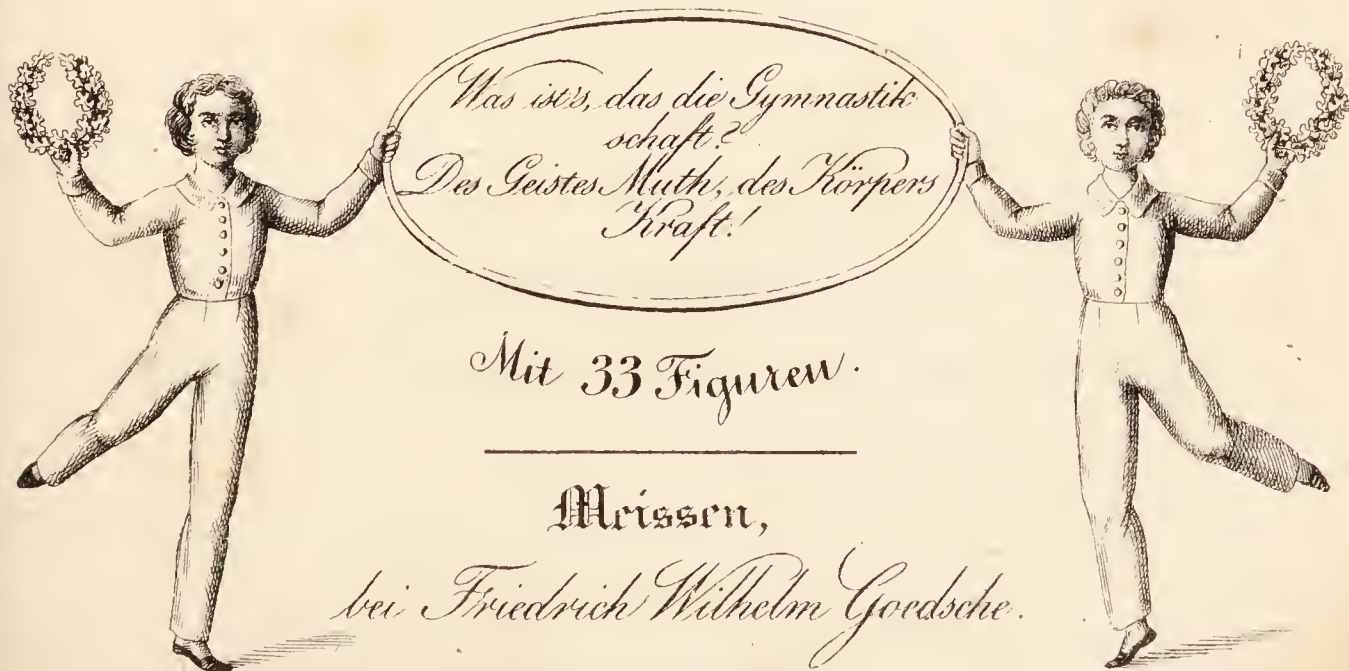 Was ist's, das die Gymnastik
schaft?
Des Geistes Muth, des Körpers
Kraft!
Mit 33 Figuren.
Meissen,
bei Friedrich Wilhelm Goedsche.